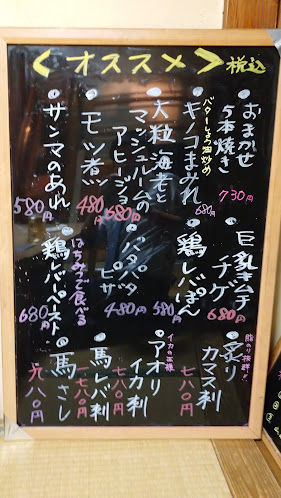 <オススメ>税込
おまかせ
5本焼き
730円
バターしょう油炒め
キノコまみれ
680円
大粒海老と
マッシュルームの
アヒージョ
680円
モツ煮
480円
サンマのあれ
580円
巨乳キムチ
チゲ
680円
鶏レバぽん
580円
パタパタ
ピザ
480円
鶏レバーペースト
はちみつで食べる
680円
脂のり抜群!!
炙り
カマス刺
七八〇円
イカの王様
アオリ
イカ刺
七八〇円
馬レバ刺
一七八〇円
馬さし
九八〇円